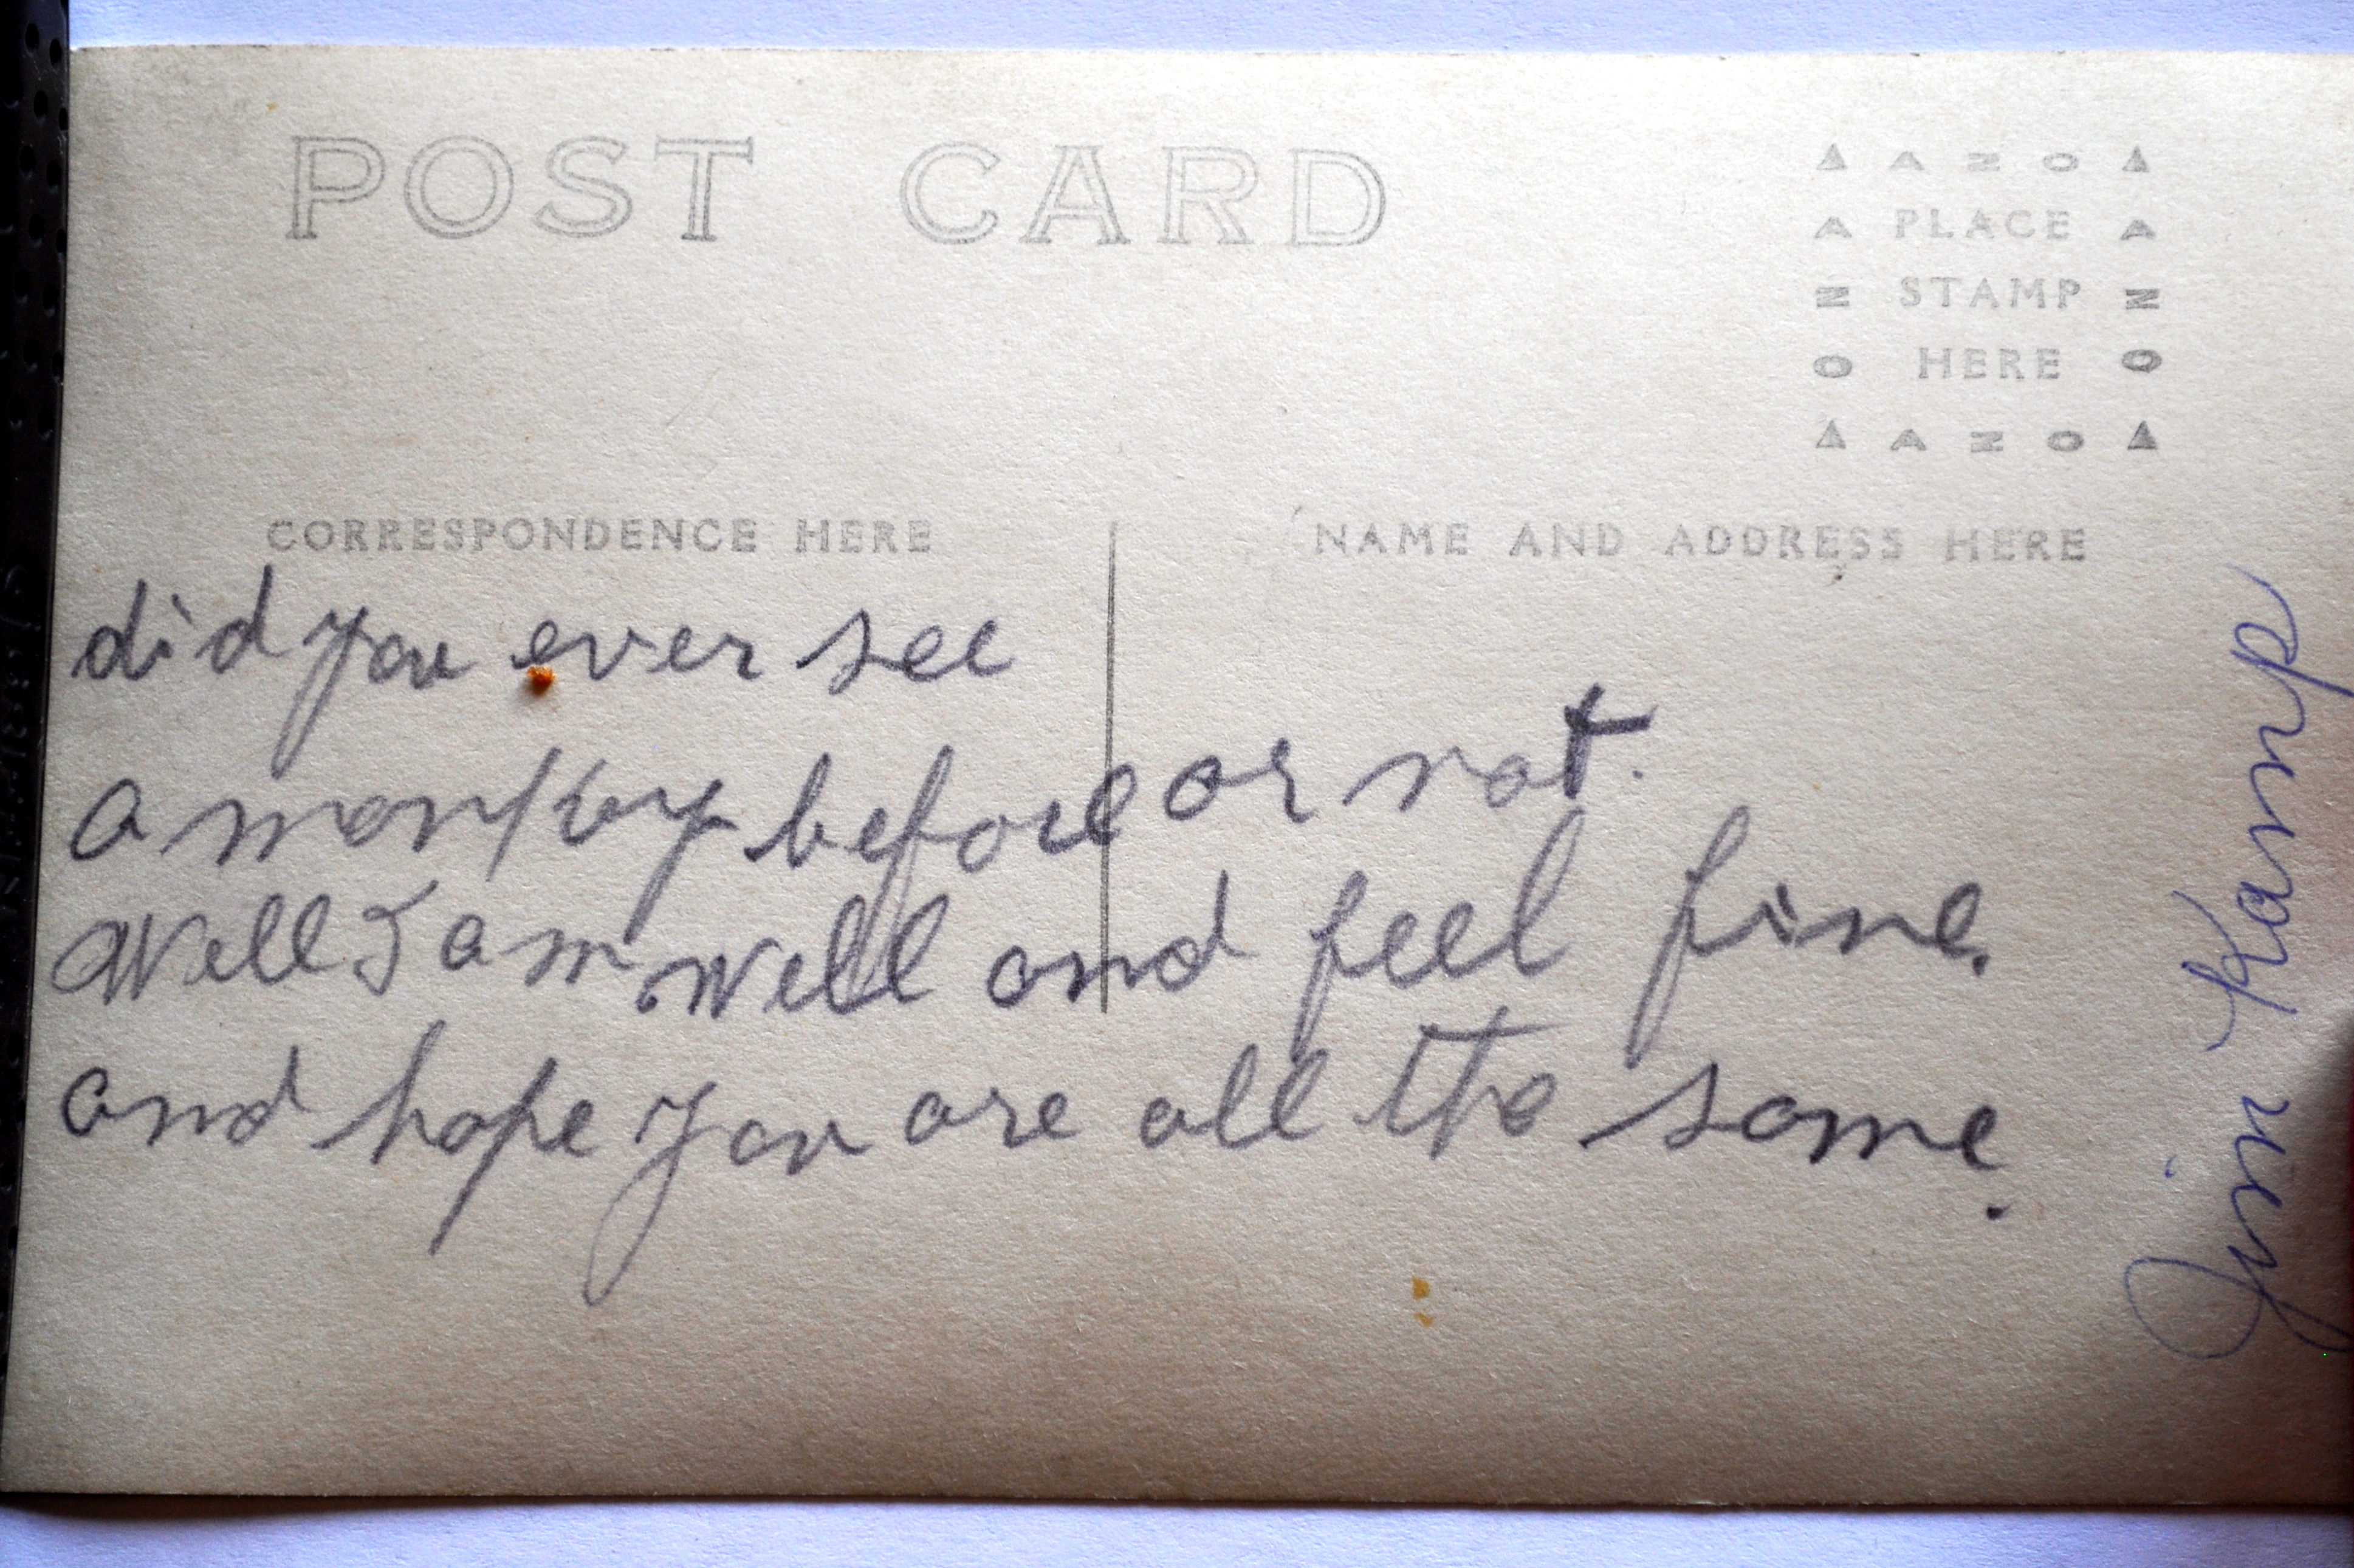 POST CARD
▲ A N O ▲
A PLACE A
N STAMP N
O HERE O
▲ A N O ▲
CORRESPONDENCE HERE
NAME AND ADDRESS HERE
did you ever see
a monkey before or not.
Well I am well and feel fine.
and hope you are all the same.
Jim Kamp